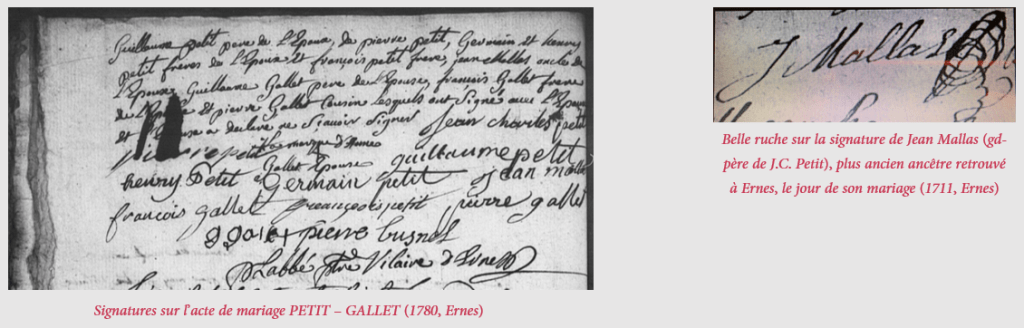 Guillaume petit pere de L'Epoux, de pierre petit, Germain et henry
petit freres de L'Epoux et françois petit frere, jean Mallas oncle de
L'Epoux, Guillaume Gallet pere de L'Epouse, francois Gallet frere
de L'Epouse et pierre Gallet Cousin Lesquels ont Signé avec L'Epoux
et L'Epouse a declaré ne Scavoir Signer
jean charles petit
pierre petit
La marque d'Année
Gallet Epouse
guillaume petit
henry Petit
Germain petit
jean mallas
francois gallet
françois petit
pierre gallet
pierre busnel
Labbé ptre Vilaire d'Ernes
Signatures sur l'acte de mariage PETIT – GALLET (1780, Ernes)
J Mallas
Belle ruche sur la signature de Jean Mallas (gd-
père de J.C. Petit), plus ancien ancêtre retrouvé
à Ernes, le jour de son mariage (1711, Ernes)